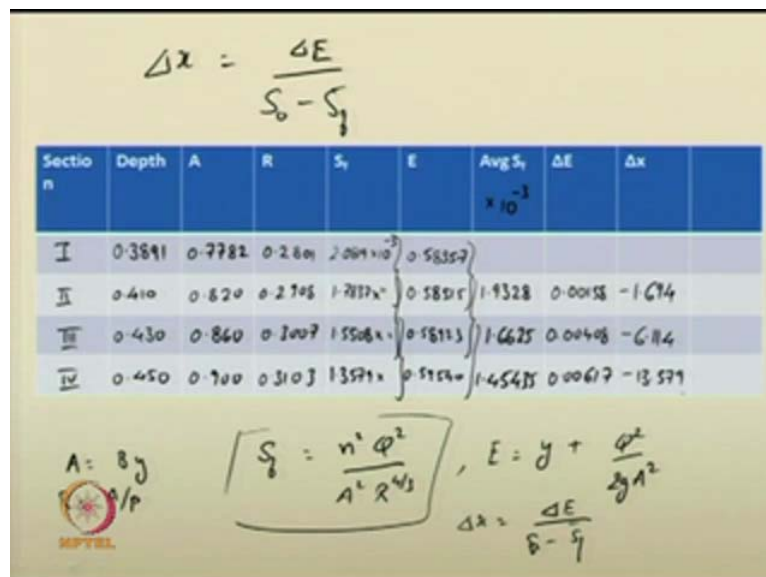 Δx = ΔE / S₀ - S_f
Section Depth A R S_f E Avg S_f × 10⁻³ ΔE Δx
I 0.3891 0.7782 0.2801 2.089×10⁻³ 0.58357
II 0.410 0.820 0.2908 1.7837× 0.58515 1.9328 0.00158 -1.694
III 0.430 0.860 0.3007 1.5508× 0.58923 1.6625 0.00408 -6.114
IV 0.450 0.900 0.3103 1.3579× 0.59540 1.45435 0.00617 -13.579
A = By S_f = n² Q² / A² R^4/3 , E = y + Q² / 2gA²
A/P Δx = ΔE / S - S_f
NPTEL